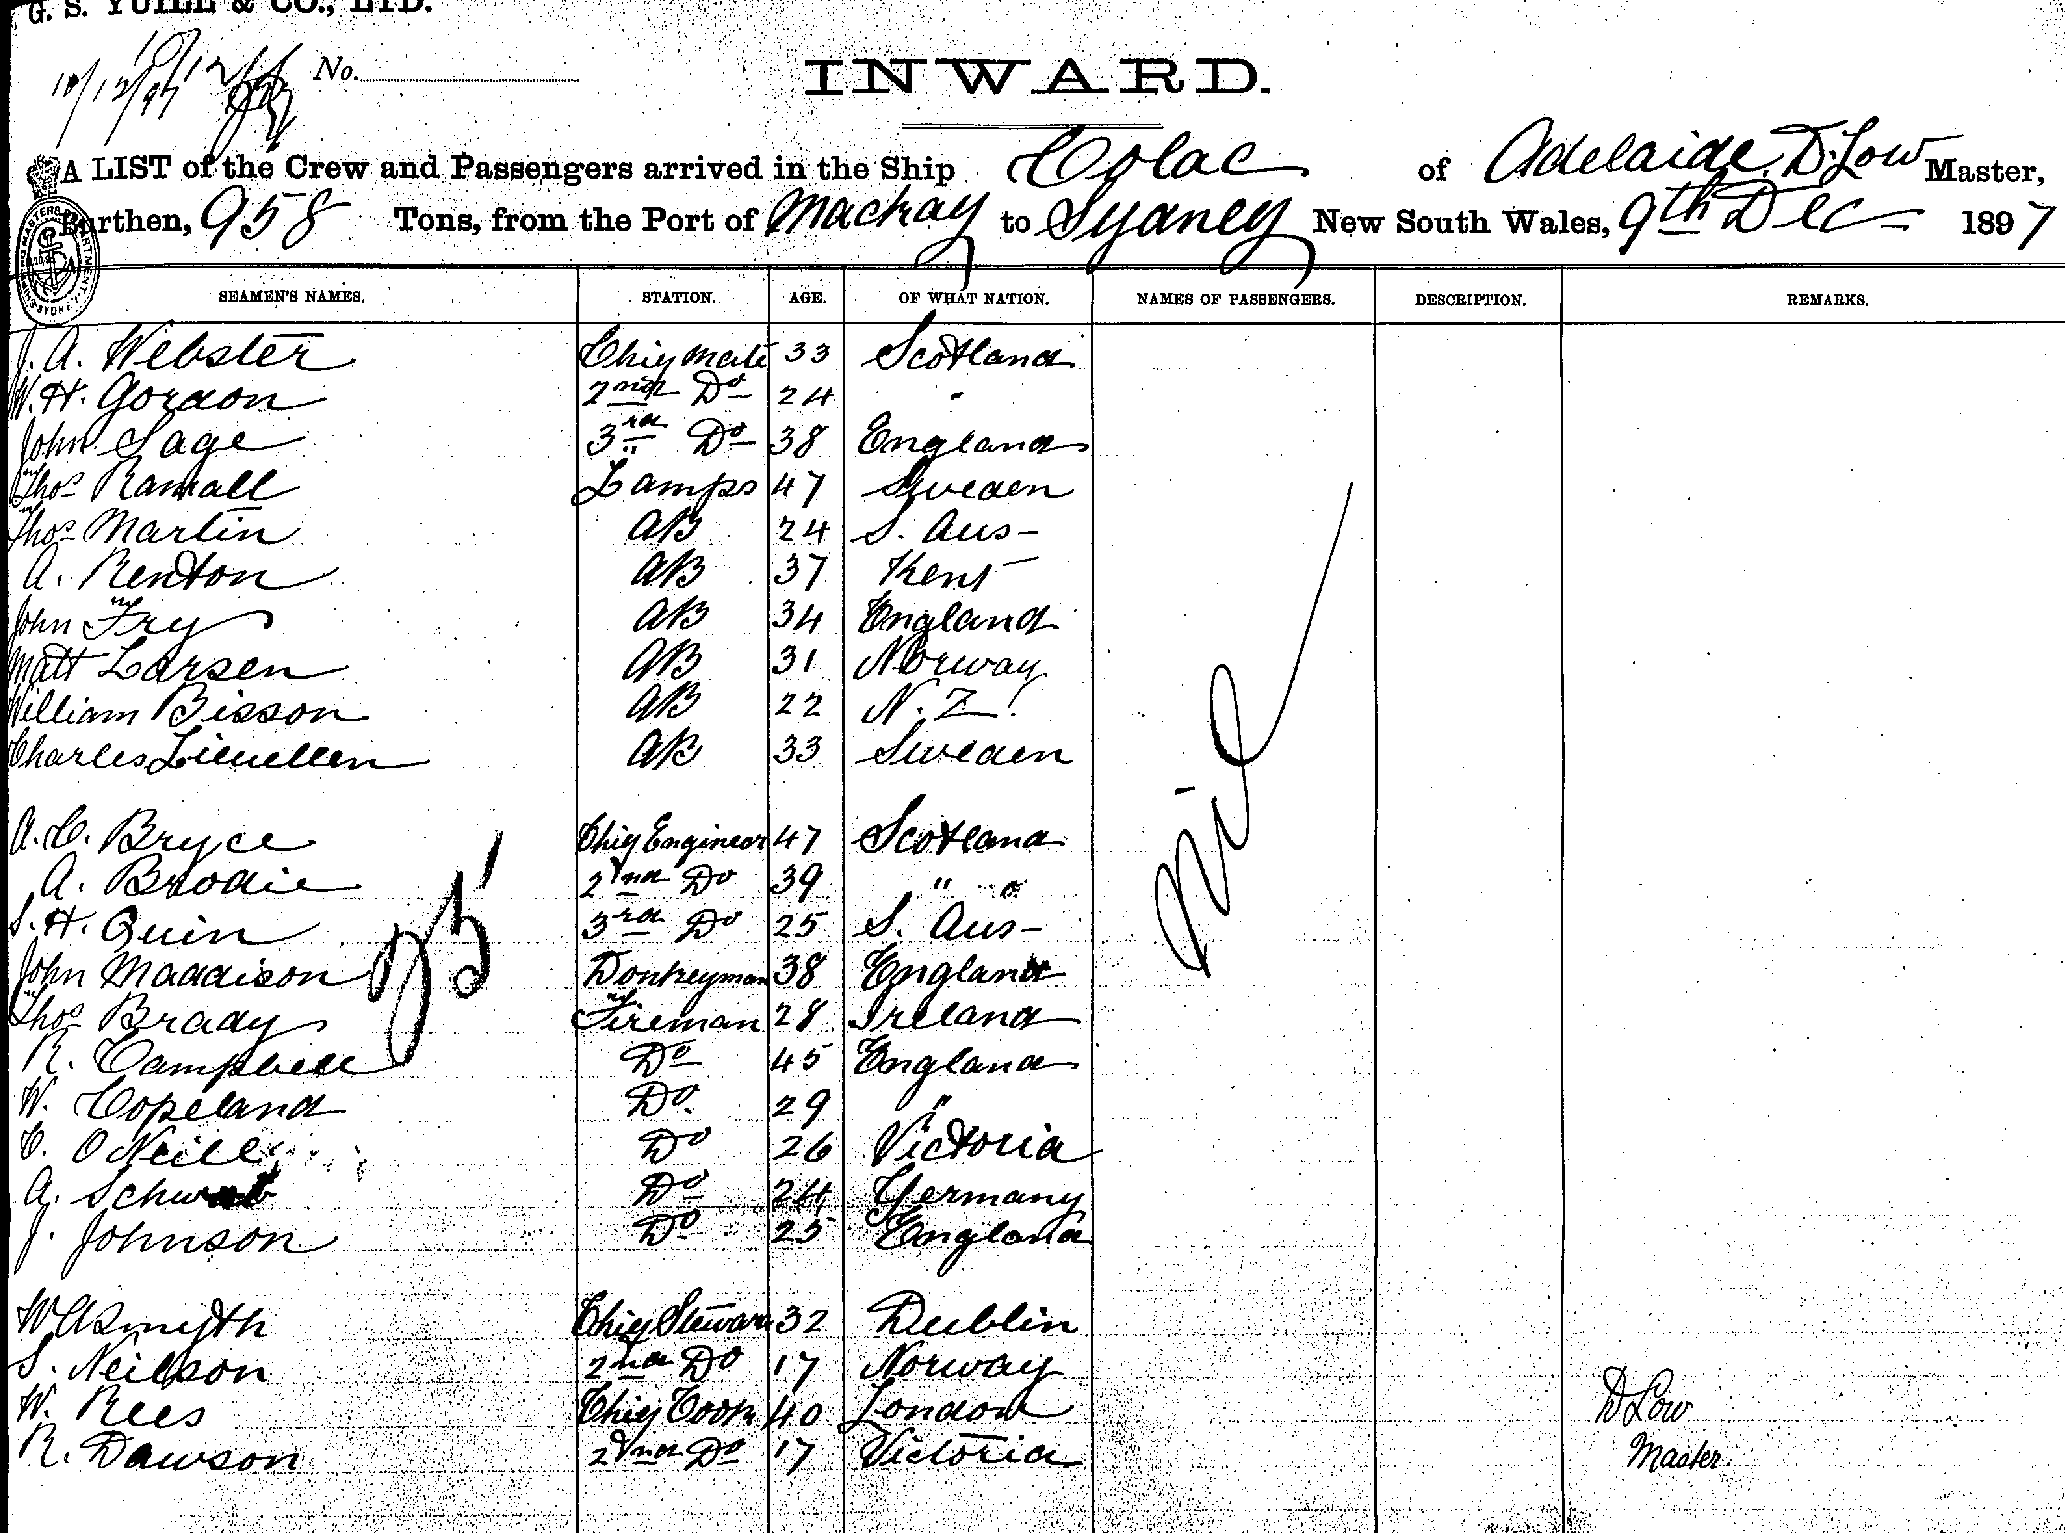 G. S. YUILL & CO., LTD.
10/12/97 No.
INWARD.
A LIST of the Crew and Passengers arrived in the Ship Colac of Adelaide, D. Low Master,
Burthen, 958 Tons, from the Port of Mackay to Sydney New South Wales, 9th Dec 1897
SEAMEN'S NAMES. STATION. AGE. OF WHAT NATION. NAMES OF PASSENGERS. DESCRIPTION. REMARKS.
J. A. Webster Chief Mate 33 Scotland
W. H. Gordon 2nd Do 24 "
John Sage 3rd Do 38 England
Thos Ramall Lamps 47 Sweden
Thos Martin AB 24 S. Aus-
A. Renton AB 37 Kent
John Fry AB 34 England
Matt Larsen AB 31 Norway
William Bisson AB 22 N. Z.
Charles AB 33 Sweden
Nil
A. C. Bryce Chief Engineer 47 Scotland
A. Brodie 2nd Do 39 " "
S. H. Quin 3rd Do 25 S. Aus-
25
John Maddison Donkeyman 38 England
Thos Brady Fireman 28 Ireland
R. Campbell Do 45 England
W. Copeland Do. 29 "
C. O Neill Do 26 Victoria
A. Schwab Do 24 Germany
J. Johnson Do 25 England
W A Smyth Chief Steward 32 Dublin
S. Neilson 2nd Do 17 Norway
W. Rees Chief Cook 40 London
R. Dawson 2nd Do 17 Victoria
D Low
Master.